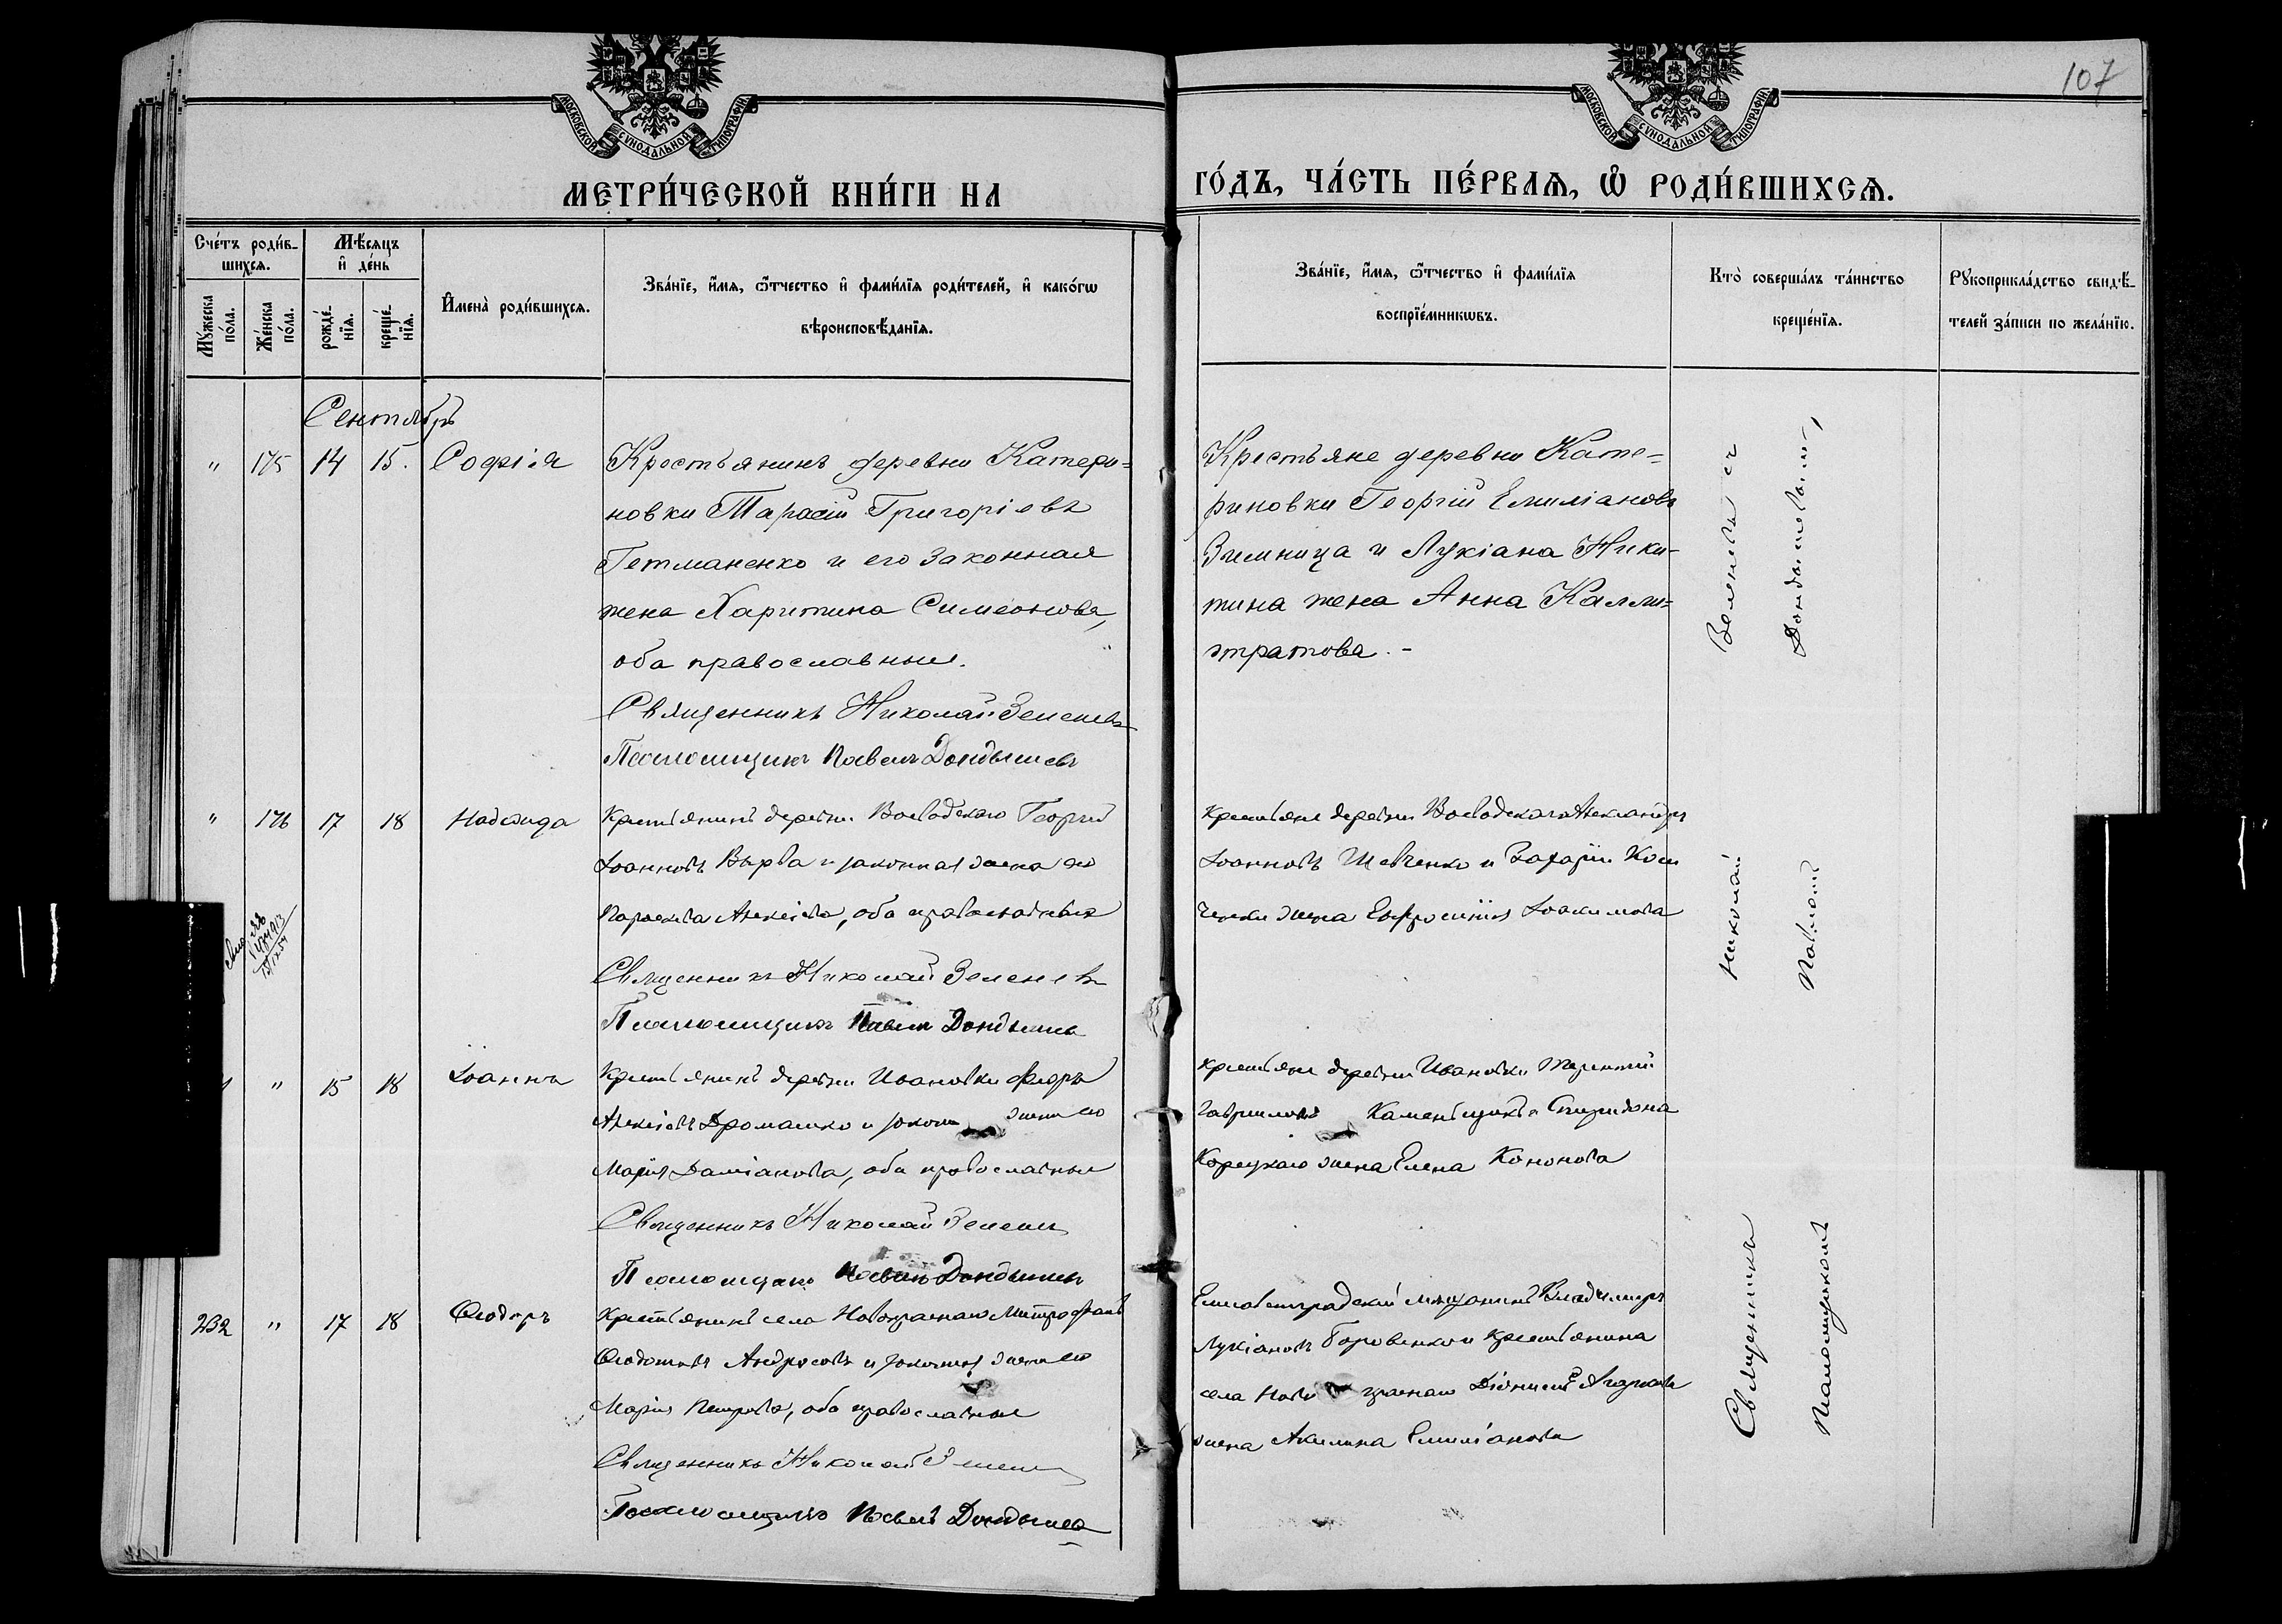 107
МОСКОВСКОЙ СѴНОДАЛЬНОЙ ТИПОГРАФІИ
МОСКОВСКОЙ СѴНОДАЛЬНОЙ ТИПОГРАФІИ
МЕТРИ́ЧЕСКОЙ КНИ́ГИ НА
ГО́ДЪ, ЧА́СТЬ ПЕ́РВАѦ, Ѡ҆ РОДИ́ВШИХСѦ.
Сче́тъ роди́в-
шихсѧ.
Мꙋ́жеска
по́ла.
Же́нска
по́ла.
Мѣ́сѧцъ
и҆ де́нь
рожде́-
нїѧ.
креще́-
нїѧ.
И҆мена̀ роди́вшихсѧ.
Зва́нїе, и҆́мѧ, ѻ҆́тчество и҆ фами́лїѧ роди́телей, и҆ како́гѡ
вѣроисповѣ́данїѧ.
Зва́нїе, и҆́мѧ, ѻ҆́тчество и҆ фами́лїѧ
воспрїе́мникѡвъ.
Кто̀ соверша́лъ та́инство
креще́нїѧ.
Рꙋкоприкла́дство свидѣ́-
телей за́писи по жела́нїю.
Сентябрь
" 175 14 15. Софія
Крестьянинъ деревни Катери=
новки Тарасій Григоріевъ
Гетманенко и его законная
жена Харитина Симеонова,
оба православные.
Священникъ Николай Зеленевъ
Псаломщикъ Павелъ Дондышевъ
Крестьяне деревни Кате=
риновки Георгій Емиліановъ
Зимница и Лукіана Ники-
тина жена Анна Калли=
стратова.-
" 176 17 18 Надежда
Крестьянинъ деревни Воеводскаго Георгій
Іоанновъ Вырва и законная жена его
Параскева Алексіева, оба православные
Священникъ Николай Зеленевъ
Псаломщикъ Павелъ Дондышевъ
Крестьяне деревни Воеводскаго Александръ
Іоанновъ Шевченко и Захарія
жена Евфросинія Іоакимова
" 15 18 Іоаннъ
Крестьянинъ деревни Ивановки Флоръ
Алексіевъ Дромашко и законн жена его
Марія Даміанова, оба православные
Священникъ Николай Зеленевъ
Псаломщикъ Павелъ Дондышевъ
Крестьяне деревни Ивановки Терентій
Гавриловъ Каменьщикъ и Спиридона
Корецкаго жена Елена Кононова
232 " 17 18 Ѳеодоръ
Крестьянинъ села Новокраснаго Митрофанъ
Ѳеодотовъ Андросовъ и законная жена его
Марія Петрова, оба православные
Священникъ Николай Зеленевъ
Псаломщикъ Павелъ Дондышевъ
Елисаветградскій мѣщанинъ Владимиръ
Лукіановъ Боровенко и крестьянина
села Ново краснаго Діонисія
жена Акилина Емиліанова
Священникъ Николай Зеленевъ съ
Псаломщикомъ Павломъ Дондышевымъ,